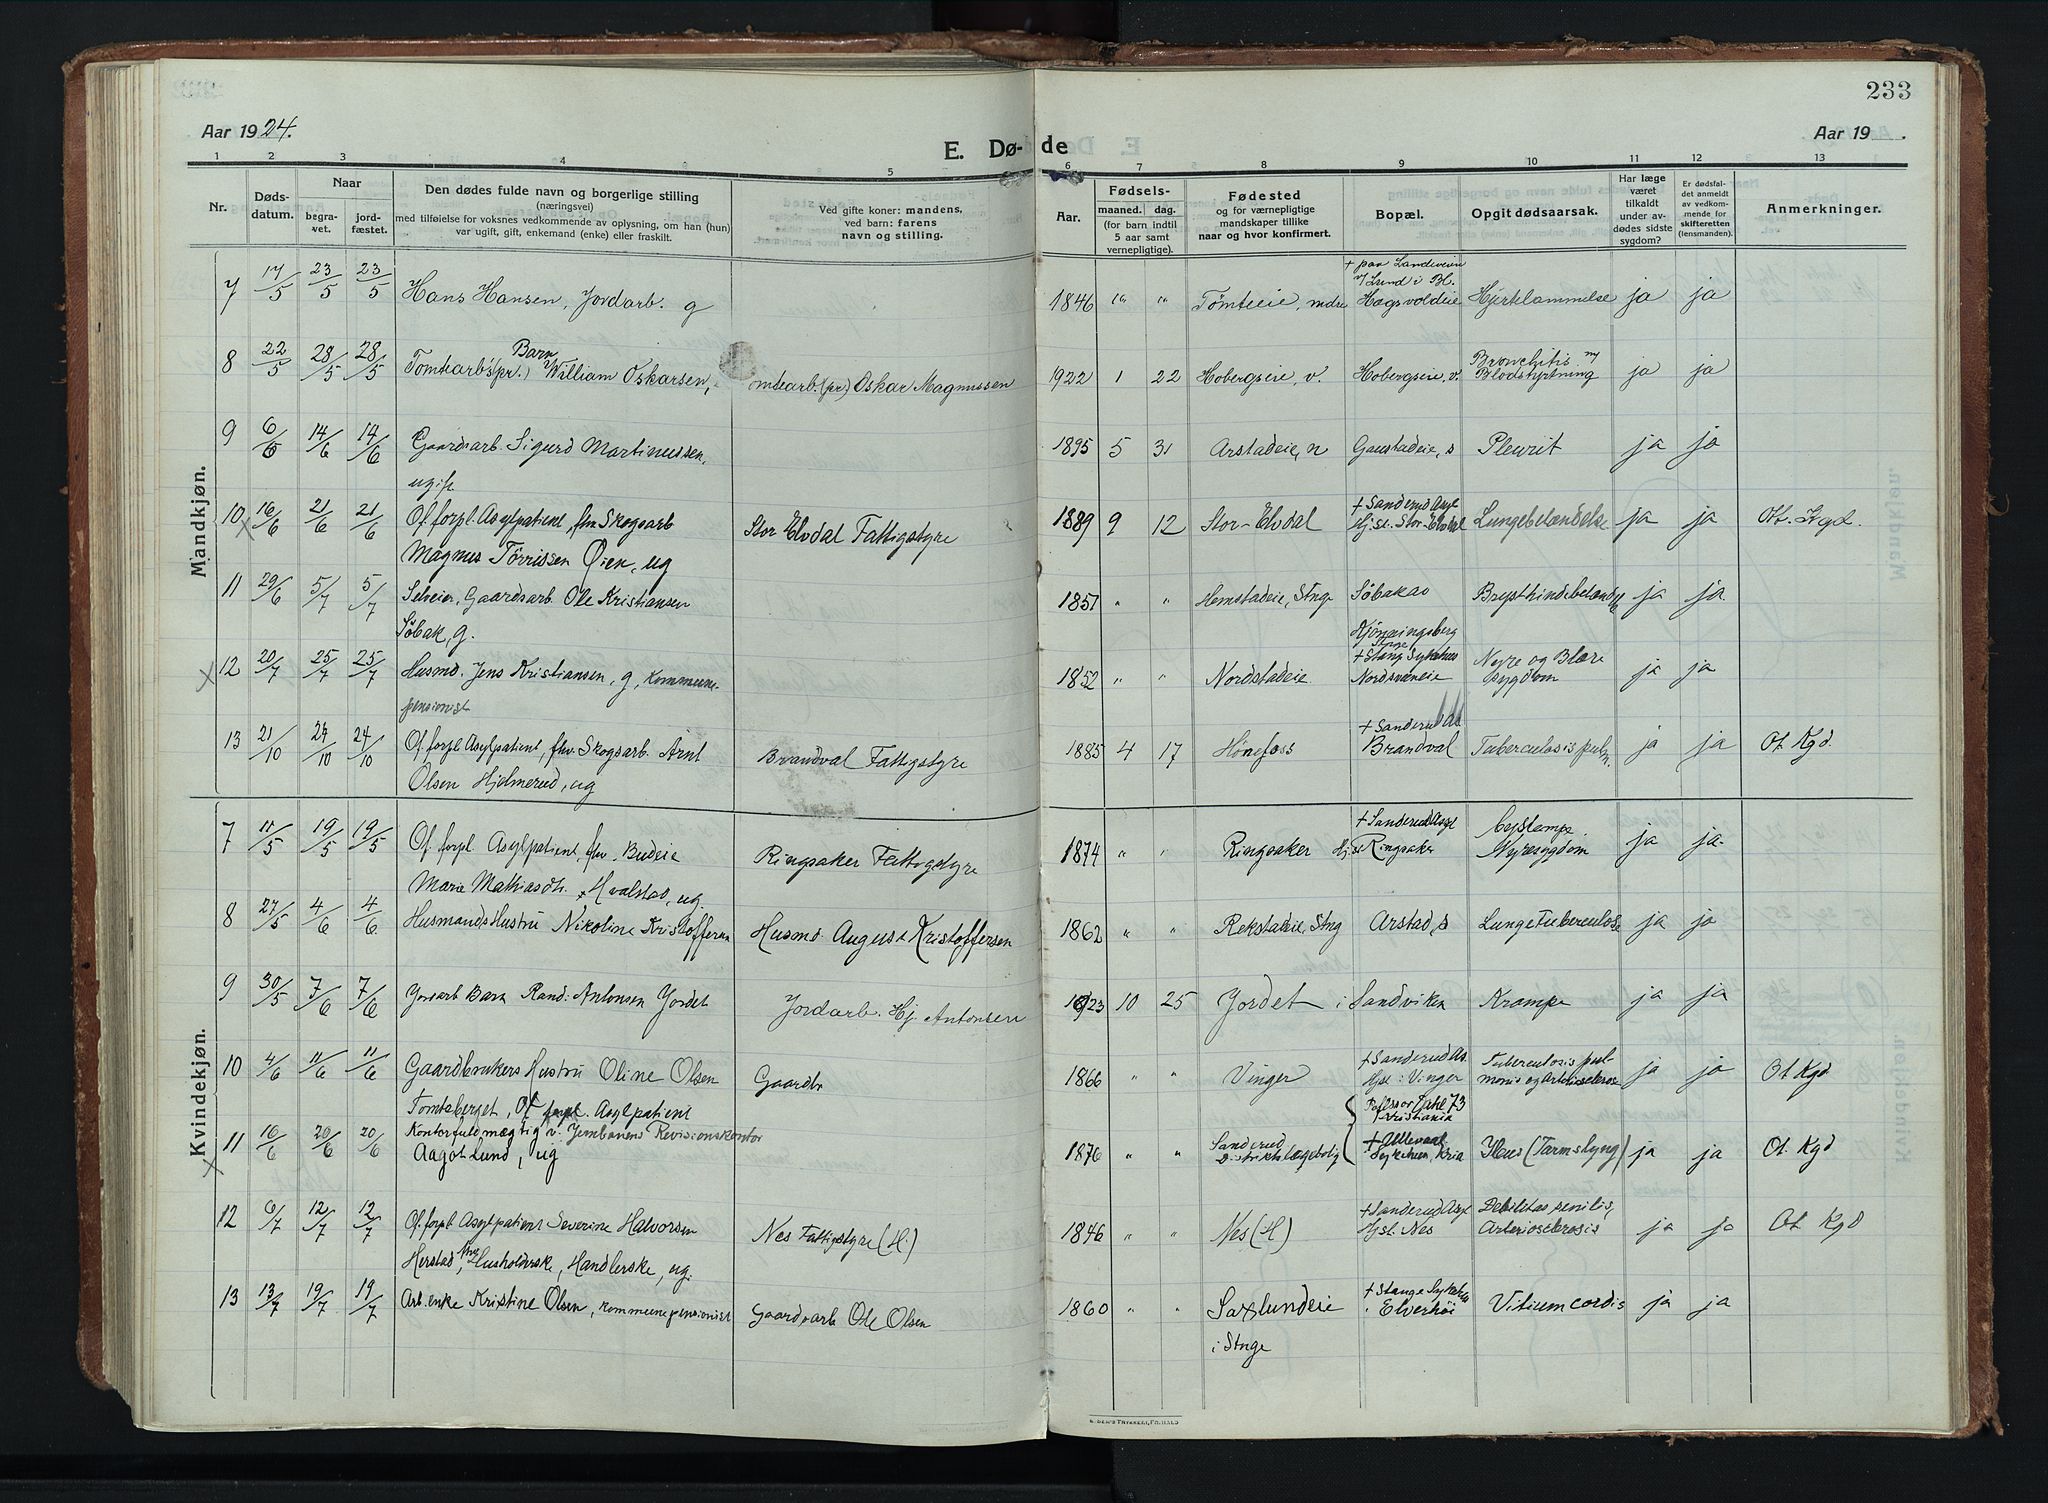 233
Aar 1924.
E. Dø-de
Aar 19 .
1 2 3 4 5 6 7 8 9 10 11 12 13
Nr.
Døds-
datum.
Naar
begra-
vet.
jord-
fæstet.
Den dødes fulde navn og borgerlige stilling
(næringsvei)
med tilføielse for voksnes vedkommende av oplysning, om han (hun)
var ugift, gift, enkemand (enke) eller fraskilt.
Ved gifte koner: mandens,
ved barn: farens
navn og stilling.
Aar.
Fødsels-
maaned. dag.
(for barn indtil
5 aar samt
vernepligtige).
Fødested
og for værnepligtige
mandskaper tillike
naar og hvor konfirmert.
Bopæl.
Opgit dødsaarsak.
Har læge
været
tilkaldt
under av-
dødes sidste
sygdom?
Er dødsfal-
det anmeldt
av vedkom-
mende for
skifteretten
(lensmanden).
Anmerkninger.
Mandkjøn.
+ paa Landeveien
v/ Lund i Bl.
7 17/5 23/5 23/5 Hans Hansen, Jordarb. g 1846 " " Tømteeie, mdre Hagsvoldeie Hjertelammelse ja ja
Barn Bronchitis
8 22/5 28/5 28/5 Tomtearb(pr.) William Oskarsen, omtearb.(pr) Oskar Magnussen 1922 1 22 Hobergseie, v. Hobergseie, v. Blodstyrtning ja ja
9 6/6 14/6 14/6 Gaardsarb. Sigurd Martinussen, 1895 5 31 Arstadeie, n Gaustadeie, s Pleurit ja ja
ugift
+ Sanderud Asyl
10 16/6 21/6 21/6 Of. forpl. Asylpatient, fhv Skogsarb Stor Elvdal Fattigstyre 1889 9 12 Stor-Elvdal Hj.st. Stor-Elvdal Lungebetændelse ja ja Ot. Kgd.
Magnus Tørrissen Øien, ug
11 29/6 5/7 5/7 Selveier, Gaardsarb. Ole Kristiansen 1857 " " Hemstadeie, Stnge Søbakao Brysthindebetænd ja ja.
Søbak, g.
+ Stange Sykehus Nyre og Blære
12 20/7 25/7 25/7 Husmd. Jens Kristiansen, g, kommune- 1852 " " Nordstadeie Nordsveneie sygdom ja ja
pensionist
+ Sanderud As.
13 21/10 24/10 24/10 Of. forpl. Asylpatient, fhv. Skogsarb. Arnt Brandval Fattigstyre 1885 4 17 Hønefoss Brandval Tuberculosis pulm. ja ja Ot Kgd.
Olsen Hjelmerud, ug
Kvindekjøn.
+ Sanderud Asyl
7 11/5 19/5 19/5 Of. forpl. Asylpatient, fhv. Budeie Ringsaker Fattigstyre 1874 " " Ringsaker Hjst Ringsaker Nyresygdom ja ja
Marie Mathiasdt. Hvalstad, ug.
8 27/5 4/6 4/6 Husmands Hustru Nikoline Kristoffersen Husmd. August Kristoffersen 1862 " " Rekstadeie, Stng Arstad, s Lungetuberculose ja ja
9 30/5 7/6 7/6 Jordarb Barn Randi Antonsen Jordet Jordarb. Hj. Antonsen 1923 10 25 Jordet i Sandviken Krampe ja ja
+ Sanderud As. Tuberculosis pul-
10 4/6 11/6 11/6 Gaardbrukers Hustru Oline Olsen Gaardbr 1866 " " Vinger Hjst: Vinger monis og Arteriosclerose ja ja Ot Kgd
Tomtaberget, Of. forpl. Asylpatient
Professor Dahl 73
Kristiania
11 16/6 20/6 20/6 Kontorfuldmægtig v. Jernbanens Revisionskontor 1876 " " Sanderud + Ullevaal Ileus (Tarmslyng) ja ja Ot. Kgd
Aagot Lund, ug Distriktslægebolig Sykehus, Kria
+ Sanderud Asyl Debilitas senilis,
12 6/7 12/7 12/7 Of. forpl. Asylpatient Severine Halvorsen Nes Fattigstyre (H.) 1846 " " Nes (H) Hjst. Nes Arteriosclerosis ja ja Ot Kgd
Herstad, fhv Husholderske, Handlerske, ug.
+ Stange Sykehus
13 13/7 19/7 19/7 Arb. enke Kristine Olsen, kommunepensionist Gaardsarb Ole Olsen 1860 " " Saxlundeie Elverhøi Vitium cordis ja ja
i Stnge